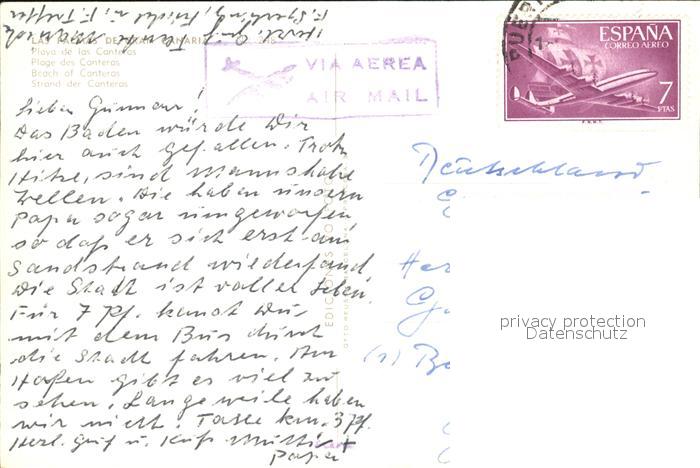 LAS PALMAS DE GRAN CANARIA
Playa de las Canteras
Plage des Canteras
Beach of Canteras
Strand der Canteras
VIA AEREA
AIR MAIL
ESPAÑA
CORREO AEREO
7
PTAS
Lieber Gunnar!
Das Baden würde Dir
hier auch gefallen. Trotz
Hitze, sind mannshohe
Wellen. Die haben unsern
Papa sogar umgeworfen
so daß er sich erst am
Sandstrand wiederfand.
Die Stadt ist voller Leben.
Für 7 Pf. kannst Du
mit dem Bus durch
die Stadt fahren. Am
Hafen gibt es viel zu
sehen. Langeweile haben
wir nicht. Tasse 3 Pf.
Herl. Gruß u. Kuß Mutti +
Papa
EDICIONES
Deutschland
privacy protection
Datenschutz